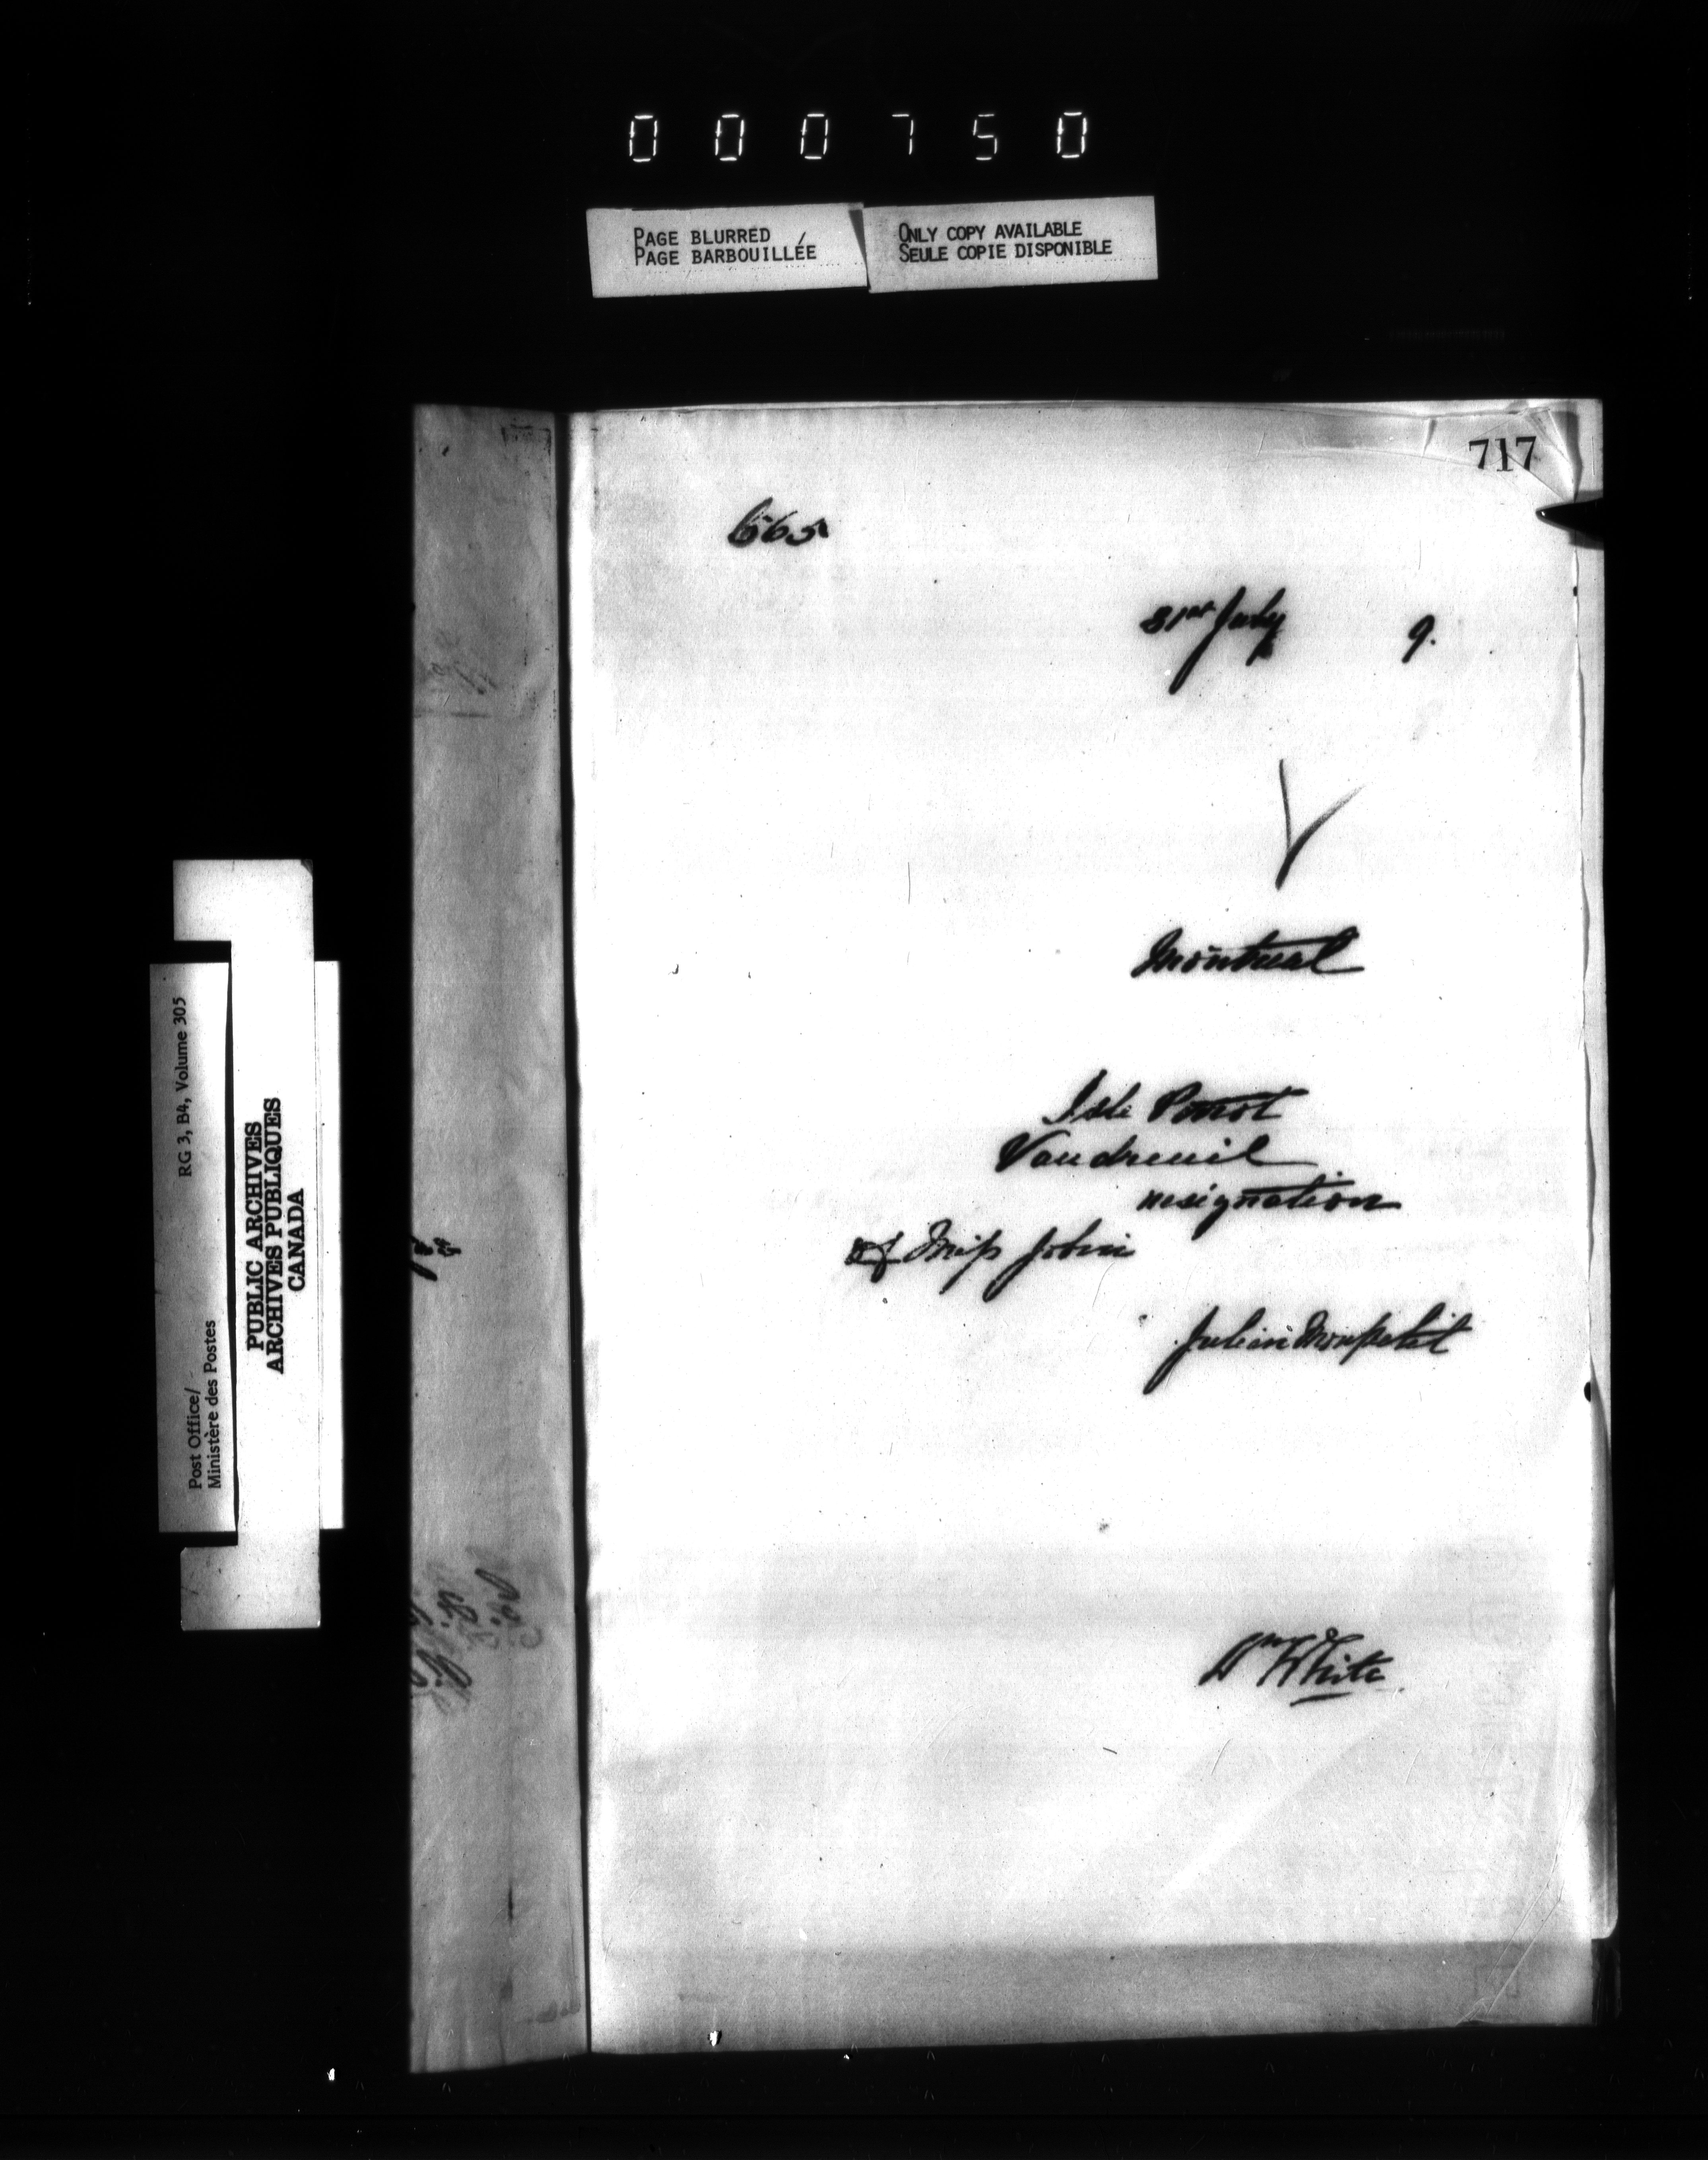 000750
PAGE BLURRED
PAGE BARBOUILLÉE
ONLY COPY AVAILABLE
SEULE COPIE DISPONIBLE
717
665
31st July 9.
Montreal
Isle Perrot
Vaudreuil
resignation
of Miss Jobin
Julien Monpetit
Wm White
RG 3, B4, Volume 305
Post Office/
Ministère des Postes
PUBLIC ARCHIVES
ARCHIVES PUBLIQUES
CANADA